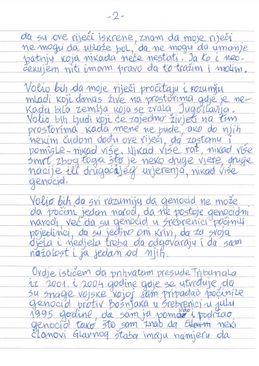 -2-
da su ove riječi iskrene, znam da moje riječi
ne mogu da ublaže bol, da ne mogu da umanje
patnju koja nikada neće nestati. Ja to i neo-
čekujem niti imam pravo da to tražim i molim.
Volio bih da moje riječi pročitaju i razumiju
mladi koji danas žive na prostorima gdje je ne-
kada bila zemlja koja se zvala Jugoslavija.
Volio bih ljudi koji će zajedno živjeti na tim
prostorima kada mene ne bude, ako do njih
nekim čudom dođu ove riječi, da zastanu i
pomisle - nikad više. Nikad više rat, nikad više
smrt zbog toga što je neko druge vjere, druge
nacije ili drugačijeg uvjerenja, nikad više
genocid.
Volio bih da svi razumiju da genocid ne može
da počini jedan narod, da ne postoje genocidni
narodi, već da su genocid u Srebrenici počinili
pojedinci, da su jedino oni krivi, da za svoja
djela i nedjela treba da odgovaraju i da sam
nažalost i ja jedan od njih.
Ovdje ističem da prihvatam presude Tribunala
iz 2001. i 2004 godine gdje se utvrđuje da
su snage vojske kojoj sam pripadao počinile
genocid protiv Bošnjaka u Srebrenici u julu
1995 godine, da sam ja pomogao i podržao
genocid tako što sam znao da neki
članovi Glavnog štaba imaju namjeru da